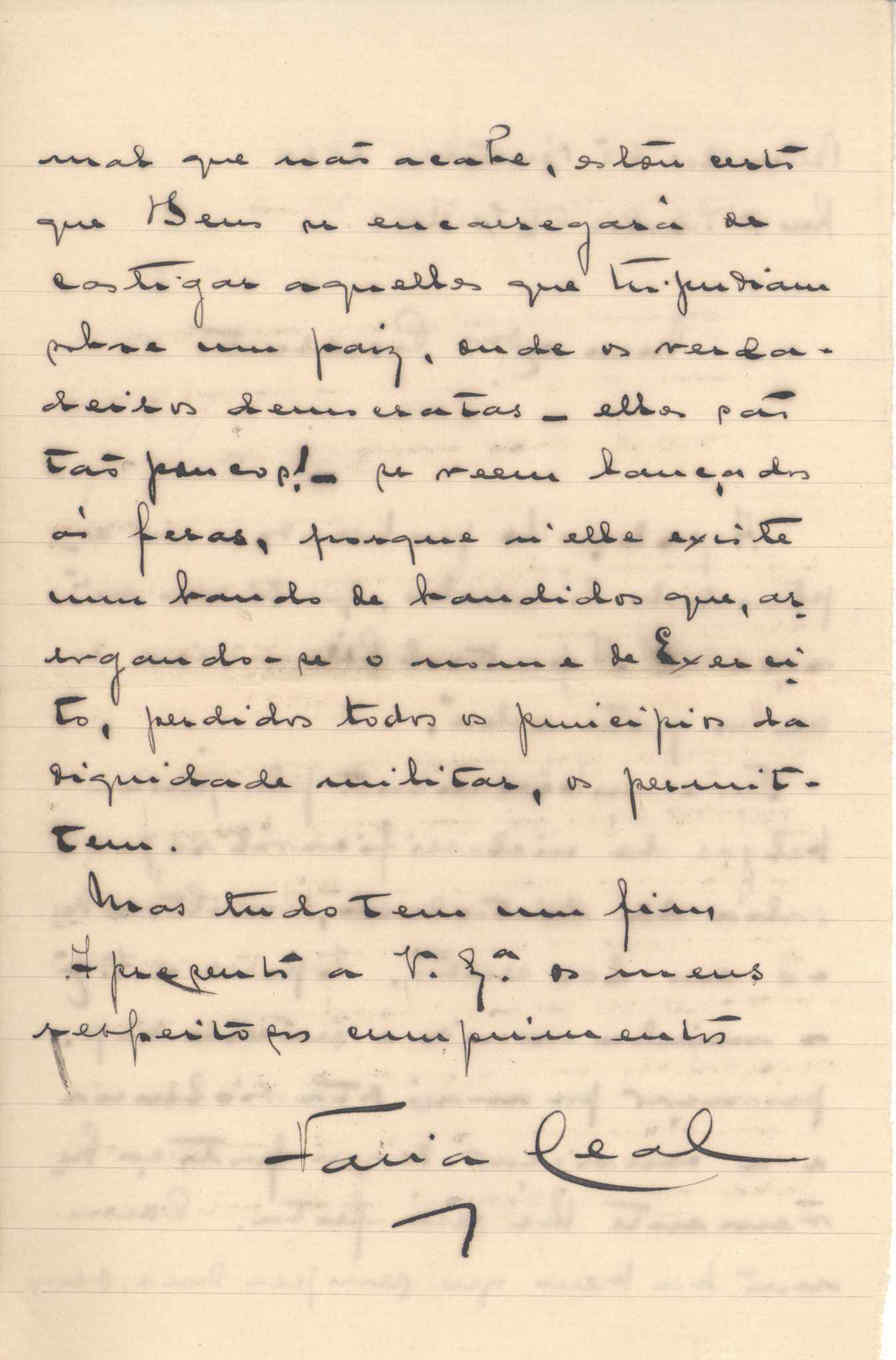 mal que não acabe, estou certo
que Deus se encarregará de
castigar aquelles que tripudiam
sobre um paiz, onde os verda-
deiros democratas _ elles são
tão poucos! _ se veem lançados
ás feras, porque n'elle existe
um bando de bandidos que, ar-
rogando-se o nome de Exerci-
to, perdidos todos os principios da
dignidade militar, os permit-
tem.
Mas tudo tem um fim,
Apresento a V. Ex.ª os meus
respeitosos cumprimentos
Faria Leal